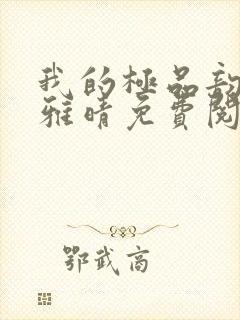 我的極品
雅晴免費閱
鄂武商